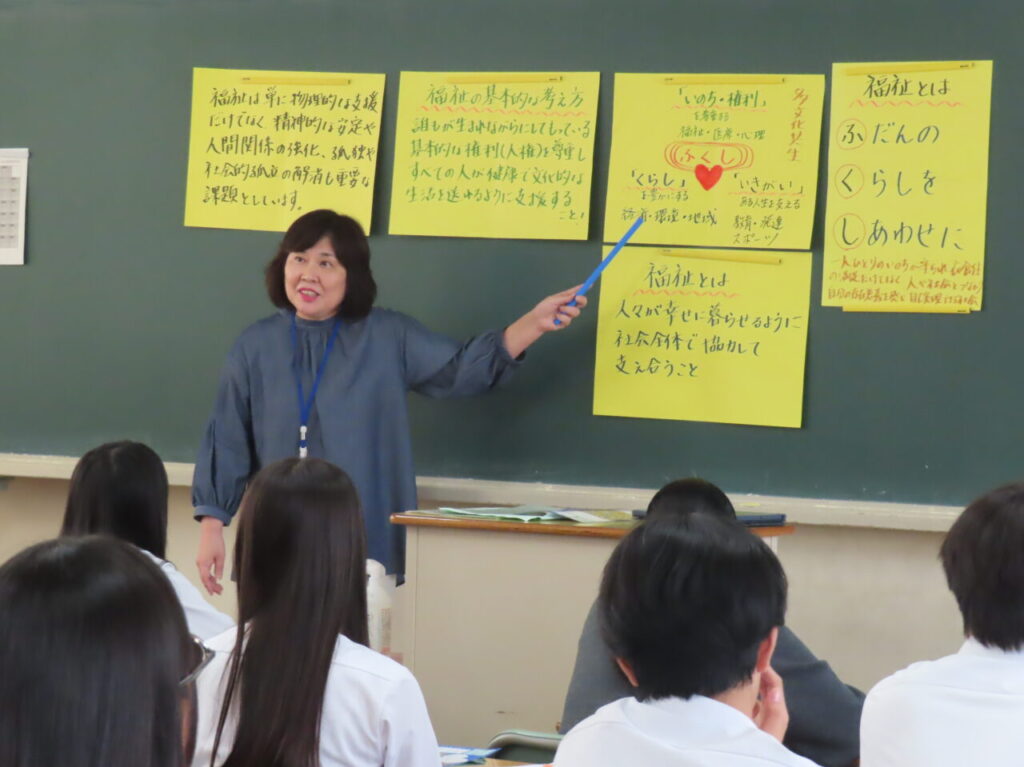 福祉は単に物理的な支援
だけでなく、精神的な安定や
人間関係の強化、孤独や
社会的孤立の解消も重要な
課題としています。
福祉の基本的な考え方
誰もが生まれながらにしてもっている
基本的な権利(人権)を尊重し
すべての人が健康で文化的な
生活を送れるように支援する
こと!
「いのち・権利」
を尊重する
福祉・医療・心理
多文化共生
ふくし
「くらし」
を豊かにする
・環境・地域
「いきがい」
ある人生を支える
教育・
スポーツ
福祉とは
人々が幸せに暮らせるように
社会全体で協力して
支え合うこと
福祉とは
ふだんの
くらしを
しあわせに
一人ひとりのいのちが守られ